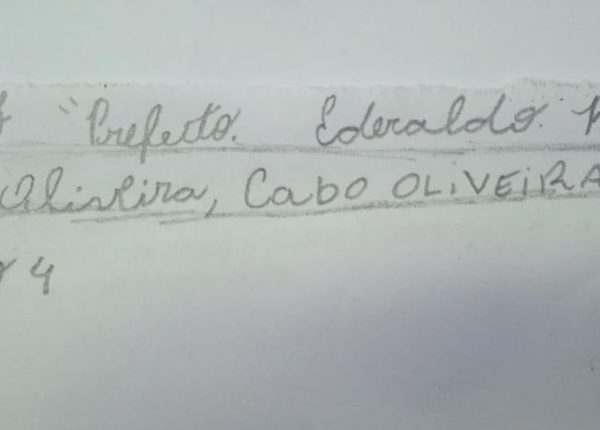 "Prefeito. Ederaldo
Oliveira, Cabo OLIVEIRA
4